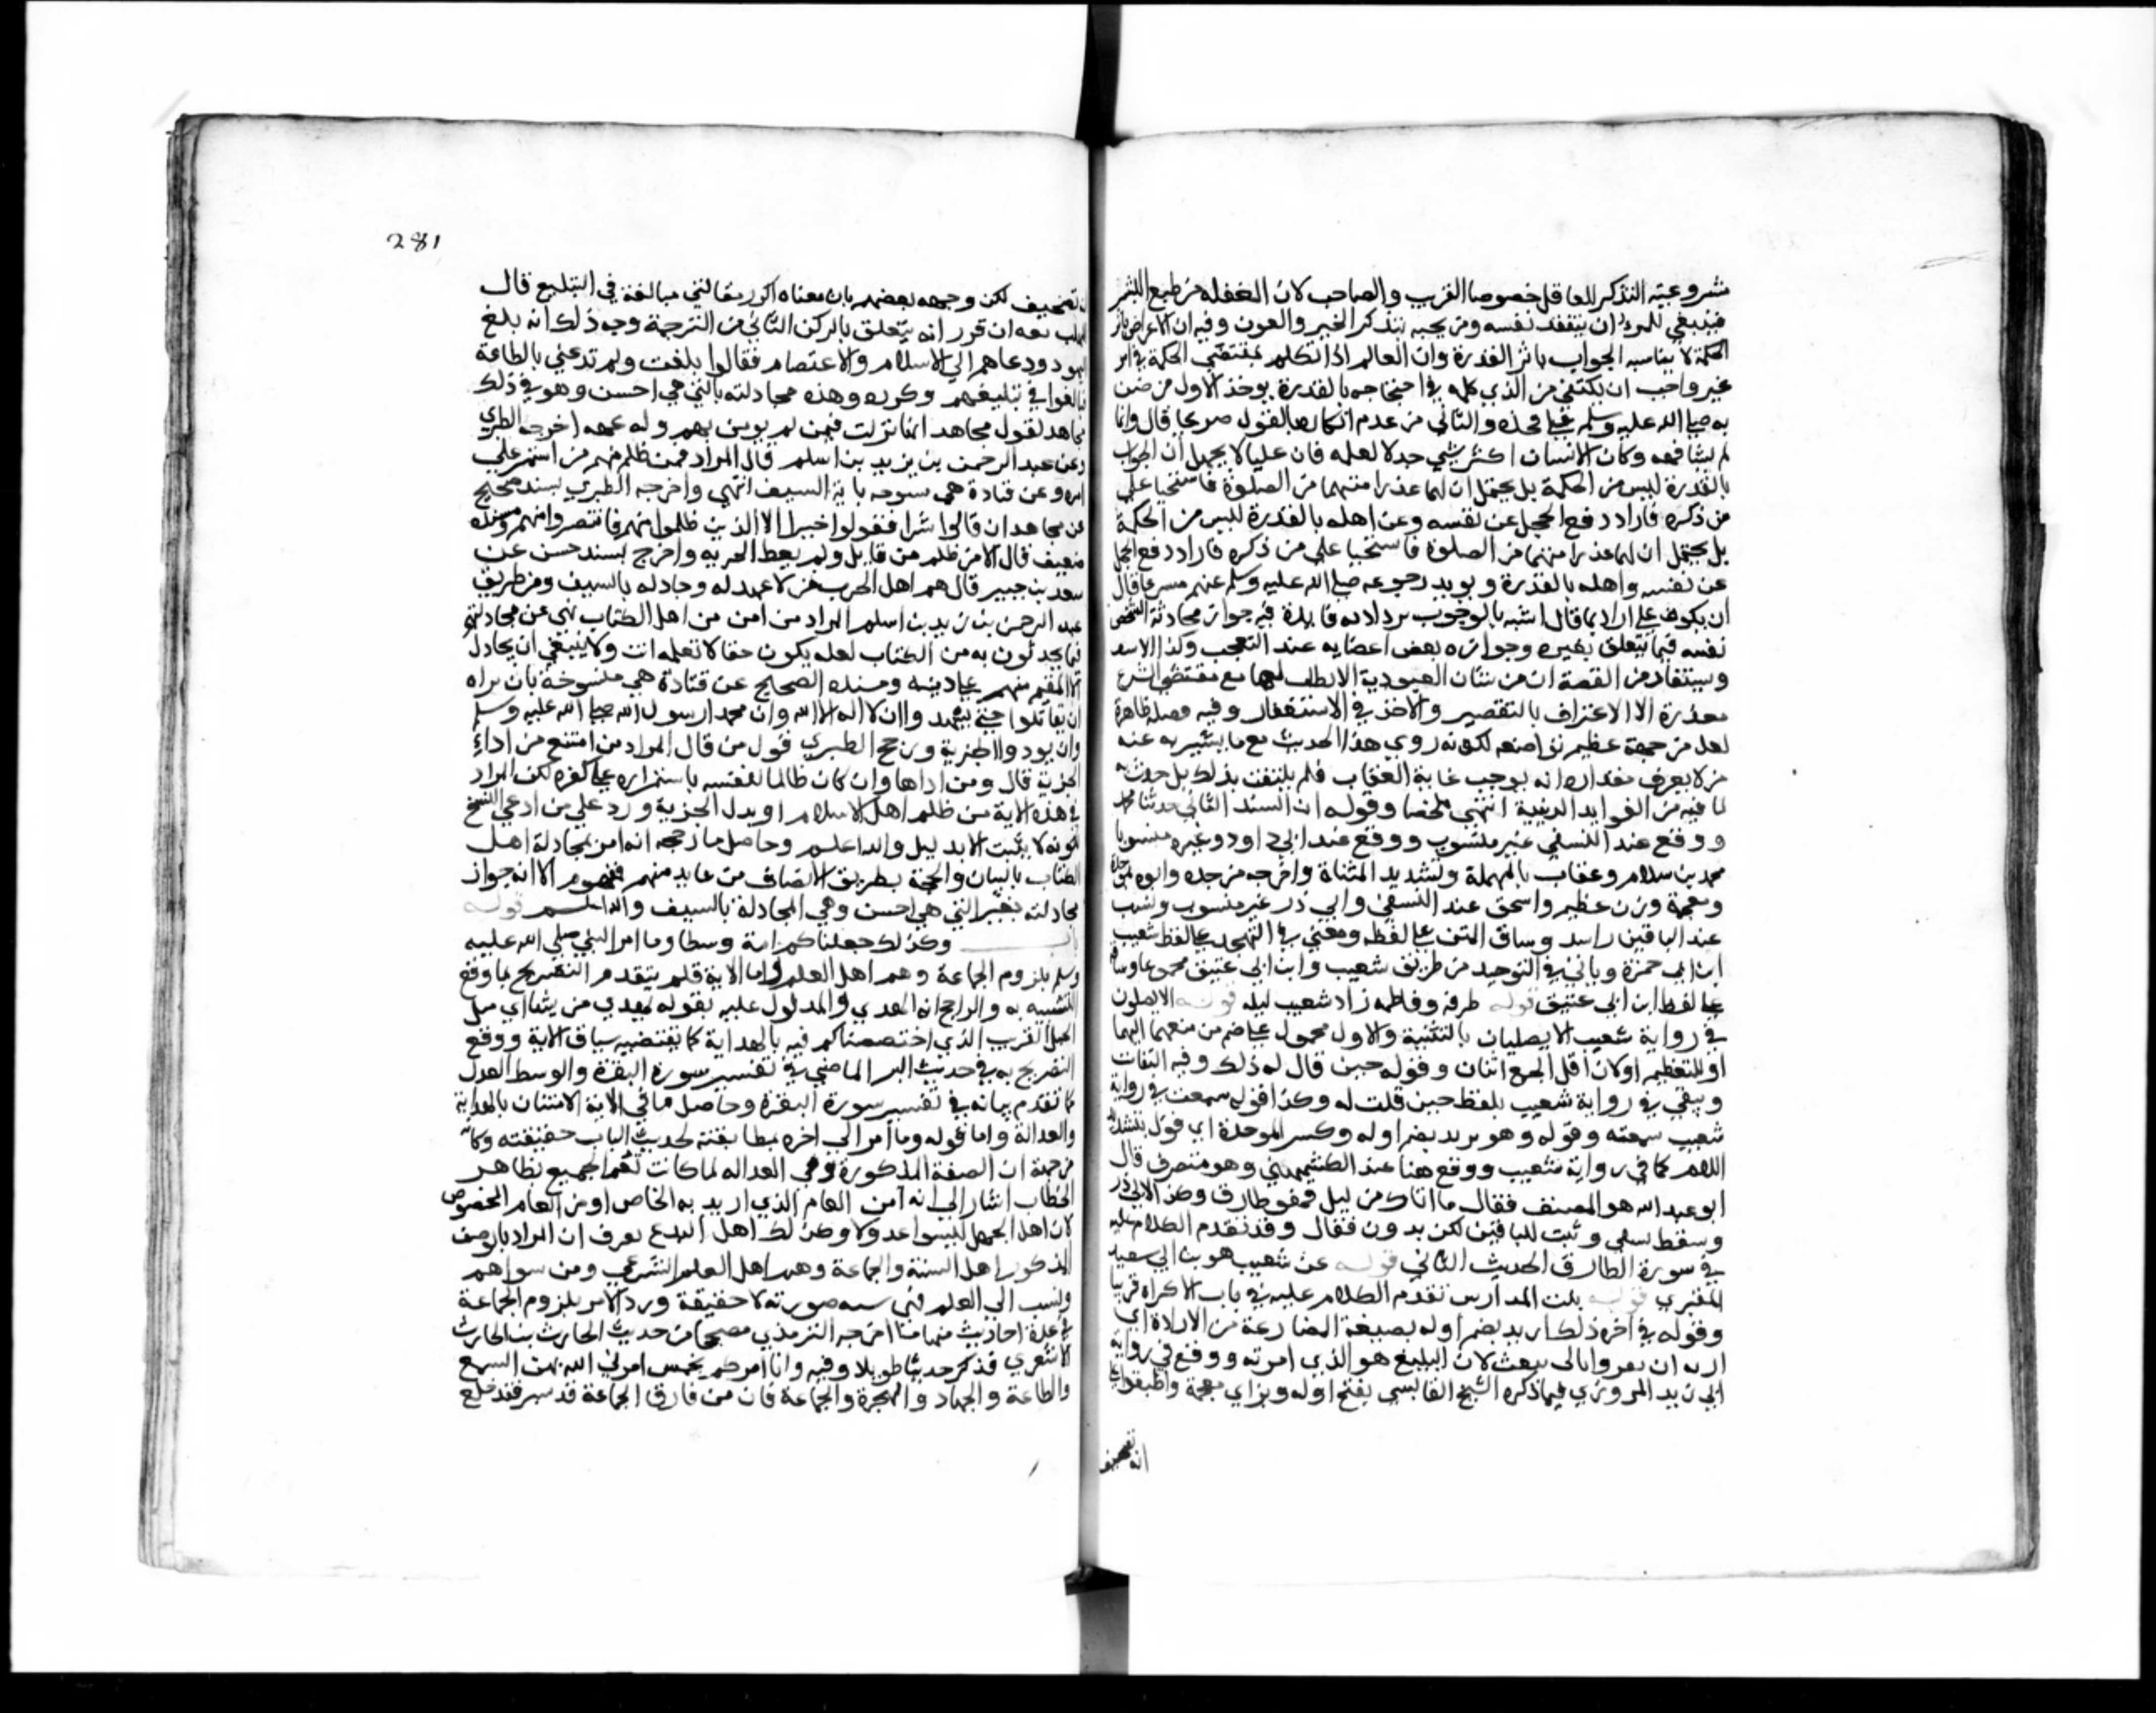 مشروعية التذكر للغافل خصوصا القريب والصاحب لان الغفلة من طبع البشر
فينبغي للمرء ان يتفقد نفسه ومن يحبه بتذكر الخير والعون وفيه ان الاعراض باثر
الحكمة لا يناسبه الجواب باثر القدرة وان العالم اذا تكلم بمقتضى الحكمة في امر
غير واجب ان يكتفي من الذي كلمه في احتجاجه بالقدرة يوخذ الاول من ضربه
به صلى الله عليه وسلم على فخذه والثاني من عدم انكاره بالقول صريحا قال وانما
لم يشافهه وكان الانسان اكثر شي جدلا لعلمه فان عليا لا يجهل ان الجواب
بالقدرة ليس من الحكمة بل يحتمل ان لهما عذرا منعهما من الصلوة فاستحيا علي
من ذكره فاراد دفع الخجل عن نفسه وعن اهله بالقدرة ليس من الحكمة
بل يحتمل ان لهما عذرا منعهما من الصلوة فاستحيا علي من ذكره فاراد دفع الخجل
عن نفسه واهله بالقدرة ويويد رجوعه صلى الله عليه وسلم عنهم مسرعا قال
ان يكون علي اراد بما قال استدعا جواب يزداد به فايدة وفيه جواز محادثة الشخص
نفسه فيما يتعلق بغيره وجواز ضربه بعض اعضايه عند التعجب وكذا الاسف
ويستفاد من القصة ان من شان العبودية الا يطلب لها مع مقتضى الشرع
معذرة الا الاعتراف بالتقصير والاخذ في الاستغفار وفيه فضيلة ظاهرة
لعلي من جهة عظيم تواضعه لكونه روي هذا الحديث مع ما يشير به عنه
من لا يعرف مقداره انه يوجب غاية العتاب فلم يلتفت بذلك بل حدث به
لما فيه من الفوايد الدينية انتهى ملخصا وقوله ان السند الثاني حدثنا محمد
ووقع عند النسفي غير منسوب ووقع عند ابي داود وغيره منسوبا
محمد بن سلام وعتاب بالمهملة وتشديد المثناة واخرجه من جده وابوه بموحدة
ومعجمة وزن عظيم واسحق عند النسفي وابي ذر غير منسوب ونسب
عند الباقين راشد وساق المتن على لفظه ومضى في التهجد على لفظ شعيب
ابن ابي حمزة وياتي في التوحيد من طريق شعيب وابن ابي عتيق مجموعا وساقه
على لفظ ابن ابي عتيق قوله طرقه وفاطمة زاد شعيب ليلة قوله الا تصلون
في رواية شعيب الا تصليان بالتثنية والاول محمول على ضم من معهما اليهما
او للتعظيم او لان اقل الجمع اثنان وقوله حين قال له ذلك وفيه التفات
ويبقى في رواية شعيب بلفظ حين قلت له وكذا قوله سمعت في رواية
شعيب سمعته وقوله وهو مدبر بضم اوله وكسر الموحدة اي مول بتشديد
اللام كما في رواية شعيب ووقع هنا عند الكشميهني وهو منصرف قال
ابو عبد الله هو المصنف فقال ما اتاك من ليل فهو طارق وكذا لابي ذر
وسقط للنسفي وثبت للباقين لكن بدون فقال وقد تقدم الكلام عليه
في سورة الطارق الحديث الثاني قوله عن شعيب هو بن ابي سعيد
المقبري قوله بيت المدارس تقدم الكلام عليه في باب الاكراه قريبا
وقوله في اخره ذلك اريد بضم اوله بصيغة المضارعة من الارادة اي
اريد ان تقروا باني بلغت لان التبليغ هو الذي امر به ووقع في رواية
ابي زيد المروزي فيما ذكره الشيخ القابسي بفتح اوله وبزاي معجمة واطبقوا على
انه تصحيف
281
انه تصحيف لكن وجهه بعضهم بان معناه اكرر مقالتي مبالغة في التبليغ قال
المهلب بعد ان قرر انه يتعلق بالركن الثاني من الترجمة وجه ذلك انه بلغ
اليهود ودعاهم الى الاسلام والاعتصام فقالوا بلغت ولم تدعني بالطاعة
فبالغوا في تبليغهم وكرره وهذه مجادلته بالتي هي احسن وهو في ذلك
مجاهد لقول مجاهد انها نزلت فيمن لم يومن بهم وله عهد اخرجه الطبري
وعن عبد الرحمن بن يزيد بن اسلم قال المراد فمن ظلم منهم من استمر على
امره وعن قتادة هي منسوخة باية السيف انتهى واخرجه الطبري بسند صحيح
عن مجاهد ان قالوا شرا فقولوا خيرا الا الذين ظلموا منهم فانتصروا منهم وبسنده
ضعيف قال الا من ظلم من قاتل ولم يعط الجزية واخرج بسند حسن عن
سعيد بن جبير قال هم اهل الحرب من لا عهد له وجادله بالسيف ومن طريق
عبد الرحمن بن زيد بن اسلم المراد من امن من اهل الكتاب نهى عن مجادلتهم
فيما يحدثون به من الكتاب لعله يكون حقا لا تعلمه انت ولا ينبغي ان يجادل
الا المقيم منهم على دينه وبسنده الصحيح عن قتادة هي منسوخة بان براه
ان يقاتلوا حتى يشهدوا ان لا اله الا الله وان محمدا رسول الله صلى الله عليه وسلم
وان يودوا الجزية ورجح الطبري قول من قال المراد من امتنع من اداء
الجزية قال ومن اداها وان كان ظالما لنفسه باستمراره على كفره لكن المراد
في هذه الاية من ظلم اهل الاسلام او بدل الجزية ورد على من ادعى النسخ
لكونه لا يثبت الا بدليل والله اعلم وحاصل ما رجحه انه امر بمجادلة اهل
الكتاب بالبيان والحجة بطريق الانصاف من عاند منهم فمفهوم الاية جواز
مجادلته بغير التي هي احسن وهي المجادلة بالسيف والله اعلم قوله
باب وكذلك جعلناكم امة وسطا وما امر النبي صلى الله عليه
وسلم بلزوم الجماعة وهم اهل العلم اما الاية فلم يتقدم التصريح بما وقع
التشبيه به والراجح انه الهدى المدلول عليه بقوله يهدي من يشا اي مثل
الجعل القريب الذي اختصصناكم فيه بالهداية كما يقتضيه سياق الاية ووقع
التصريح به في حديث البرا الماضي في تفسير سورة البقرة والوسط العدل
كما تقدم بيانه في تفسير سورة البقرة وحاصل ما في الاية الامتنان بالهداية
والعدالة واما قوله وما امر الى اخره مطابقته لحديث الباب خفيفته وكانه
من جهة ان الصفة المذكورة وهي العدالة لما كانت تعم الجميع بظاهر
الخطاب اشار الى انه من العام الذي اريد به الخاص او من العام المخصوص
لان اهل الجهل ليسوا عدولا وكذلك اهل البدع تعرف ان المراد بالوصف
المذكور اهل السنة والجماعة وهم اهل العلم الشرعي ومن سواهم
ولو نسب الى العلم فهي نسبة صورية لا حقيقة وورد الامر بلزوم الجماعة
في عدة احاديث منها ما اخرجه الترمذي مصححا من حديث الحارث بن الحارث
الاشعري فذكر حديثا طويلا وفيه وانا امركم بخمس امرني الله بهن السمع
والطاعة والجهاد والهجرة والجماعة فان من فارق الجماعة قد شبر فقد خلع